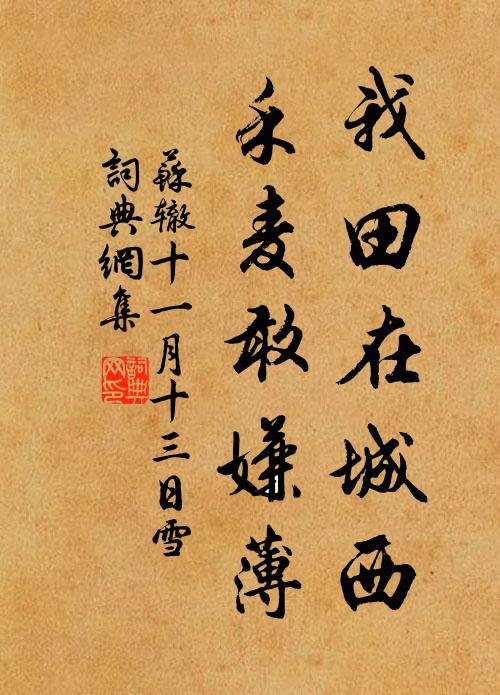 我田在城西
禾麦敢嫌薄
蘇辙十一月十三日雪
詞典網集
詞典网印